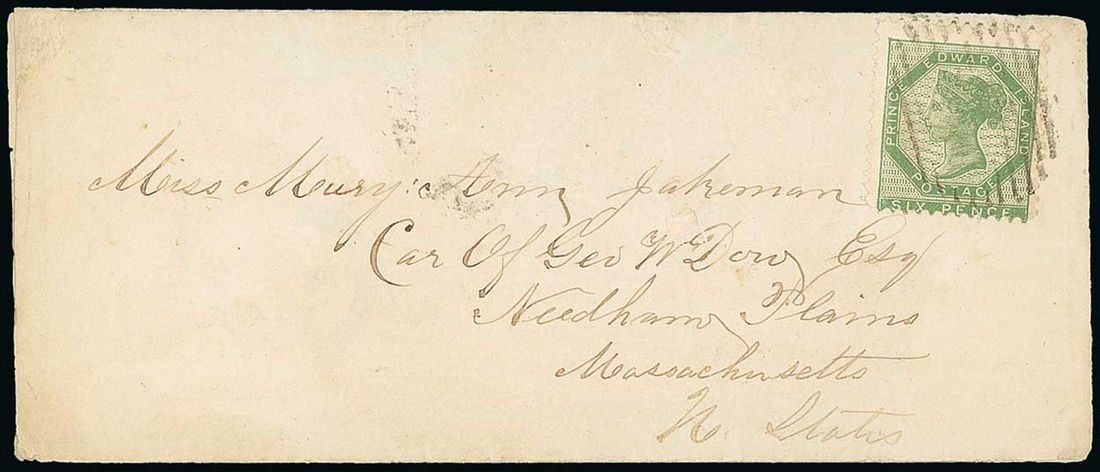 PRINCE EDWARD ISLAND
POSTAGE
SIX PENCE
Miss Mary Ann Jakeman
Car Of Geo W Dow Esq
Needham Plains
Massachusetts
U. States